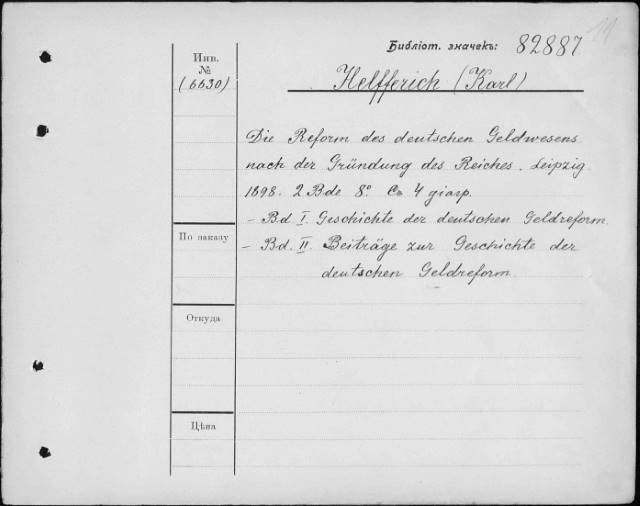 Библіот. значекъ: 82887
11
Инв.
№
(6630)
Helfferich (Karl)
Die Reform des deutschen Geldwesens
nach der Gründung des Reiches. Leipzig.
1898. 2 Bde 8º. Съ 4 діагр.
– Bd I. Geschichte der deutschen Geldreform.
– Bd. II. Beiträge zur Geschichte der
deutschen Geldreform.
По заказу
Откуда
Цѣна